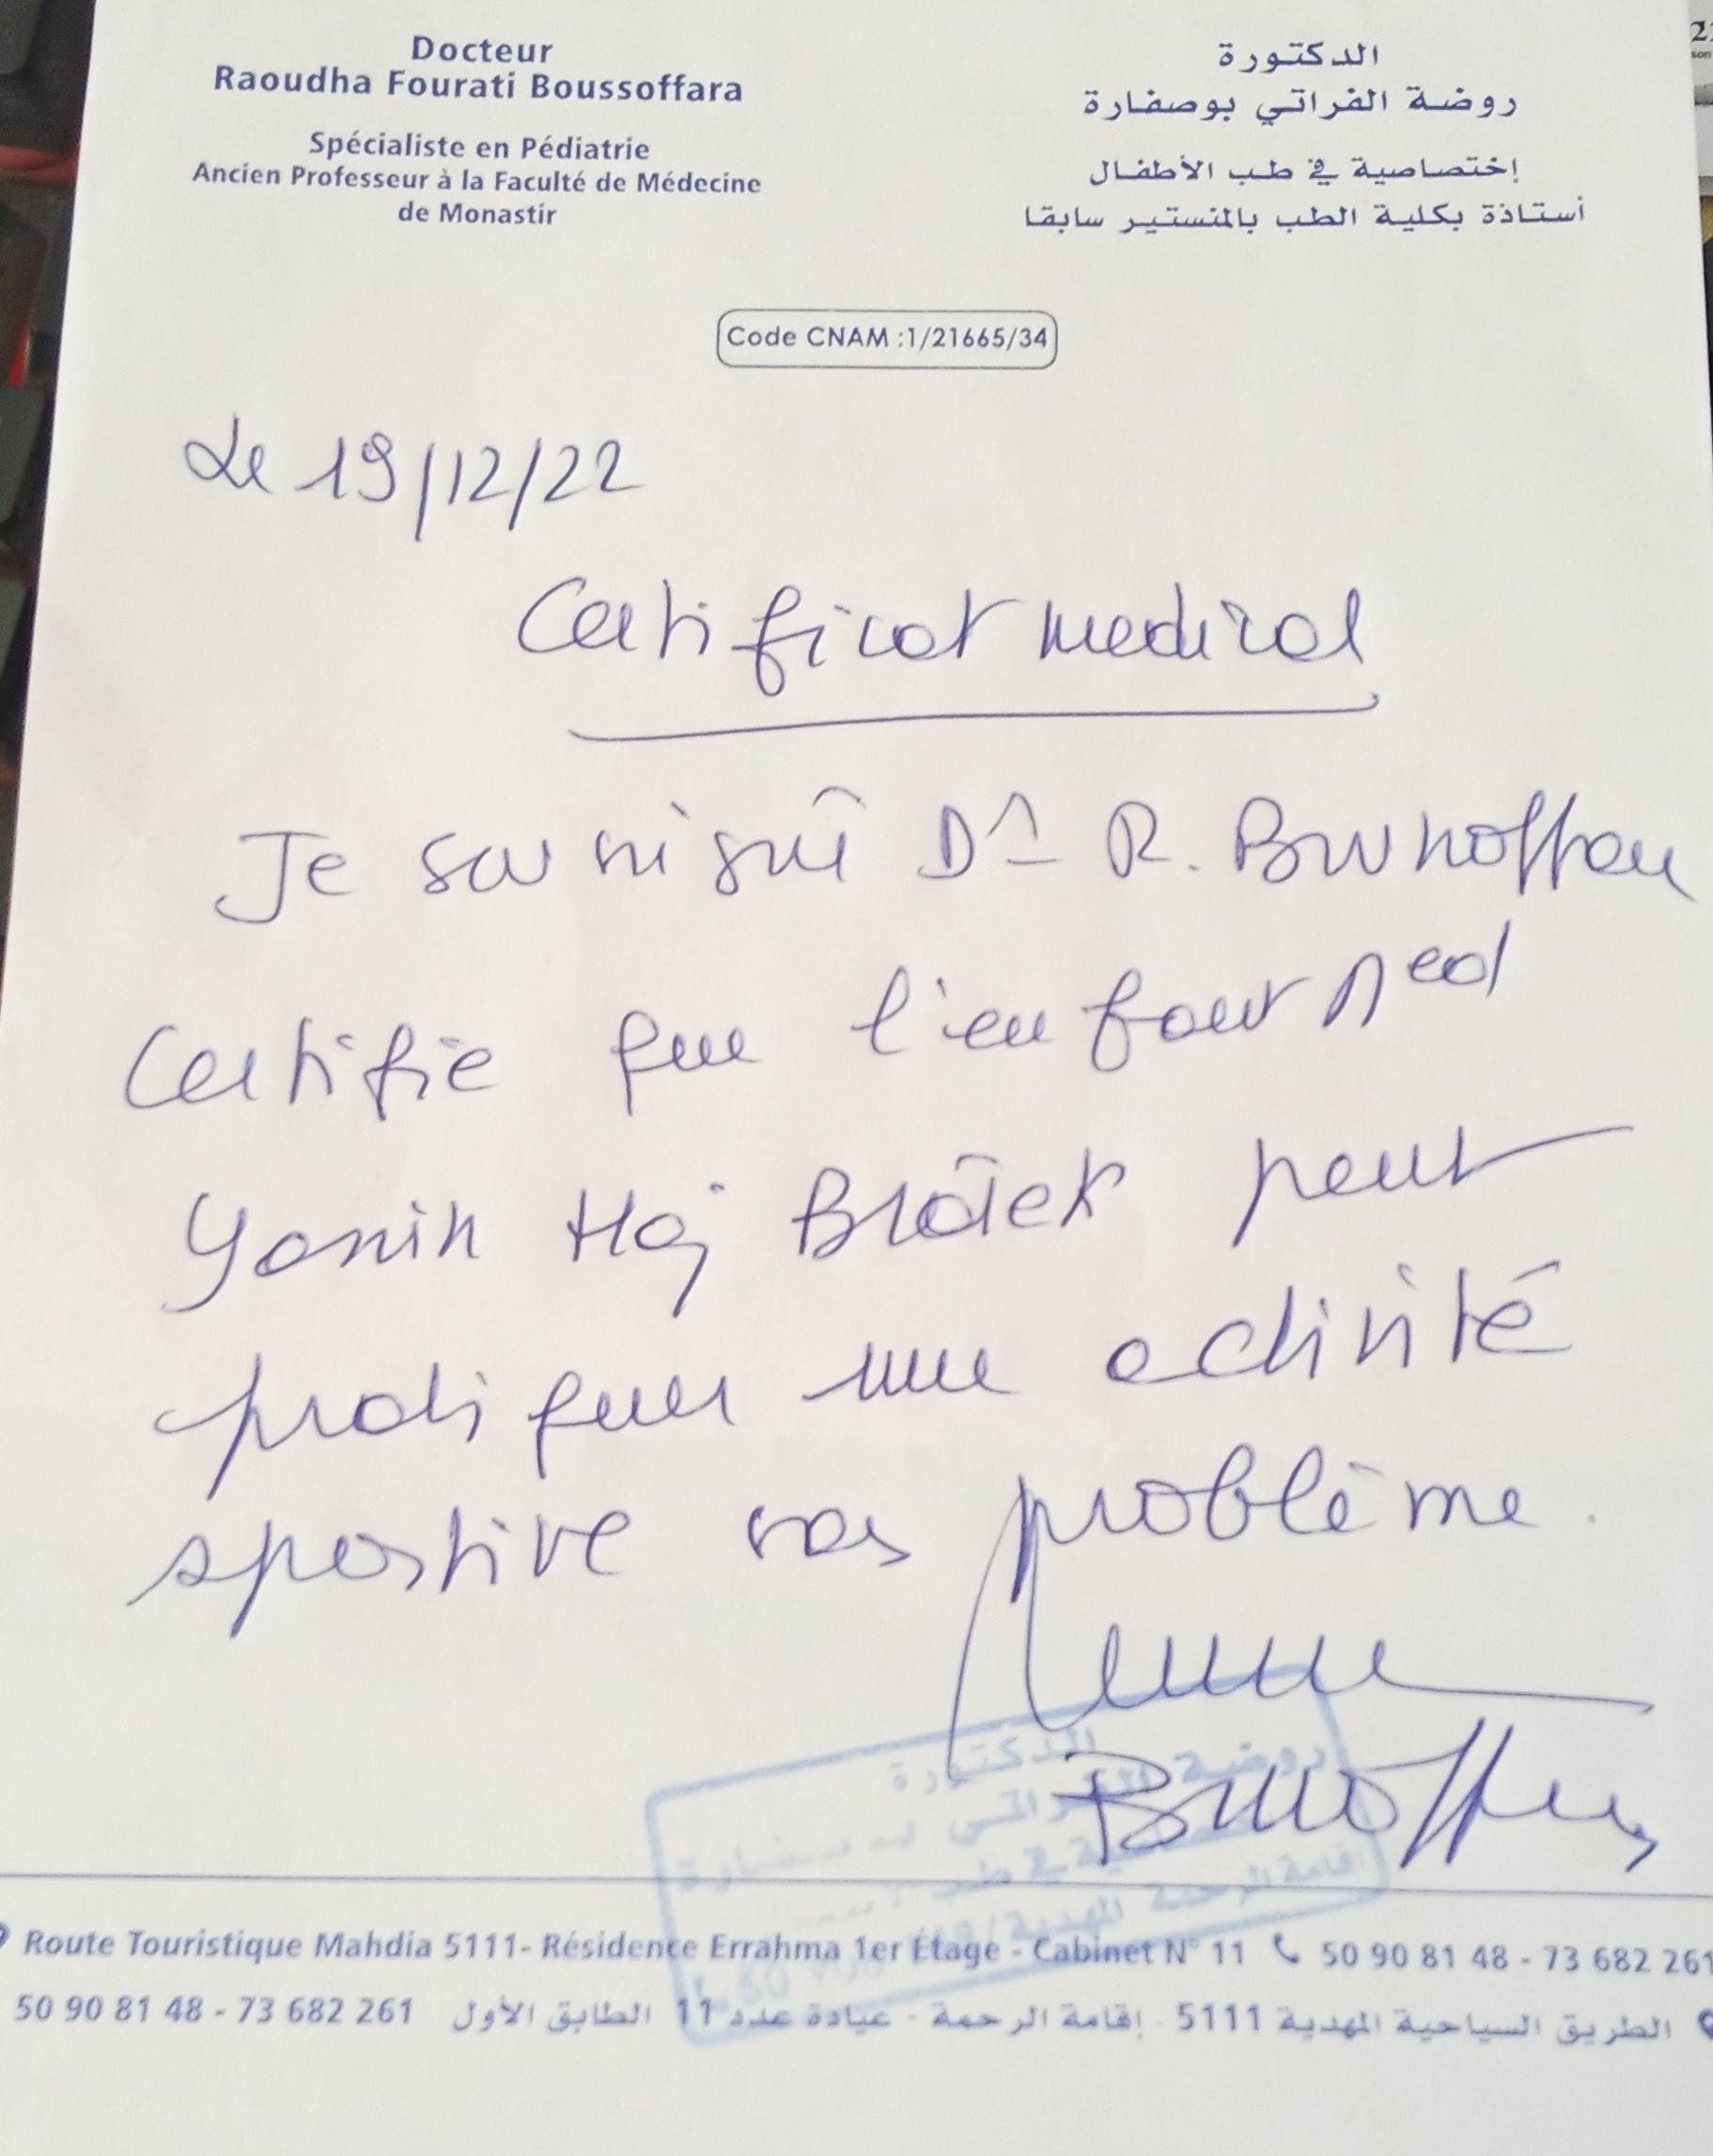 Docteur
Raoudha Fourati Boussoffara
Spécialiste en Pédiatrie
Ancien Professeur à la Faculté de Médecine
de Monastir
الدكتورة
روضة الفراتي بوصفارة
إختصاصية في طب الأطفال
أستاذة بكلية الطب بالمنستير سابقا
Code CNAM :1/21665/34
Le 19/12/22
Certificat medical
Je soussigné Dr R. Boussoffara
Certifie que l'enfant Med
Yassin Haj Braiek peut
pratiquer une activité
sportive sans problème.
الدكتورة
روضة الفراتي بوصفارة
Route Touristique Mahdia 5111- Résidence Errahma 1er Étage - Cabinet N° 11 50 90 81 48 - 73 682 261
الطريق السياحية المهدية 5111 - إقامة الرحمة - عيادة عدد 11 الطابق الأول 50 90 81 48 - 73 682 261